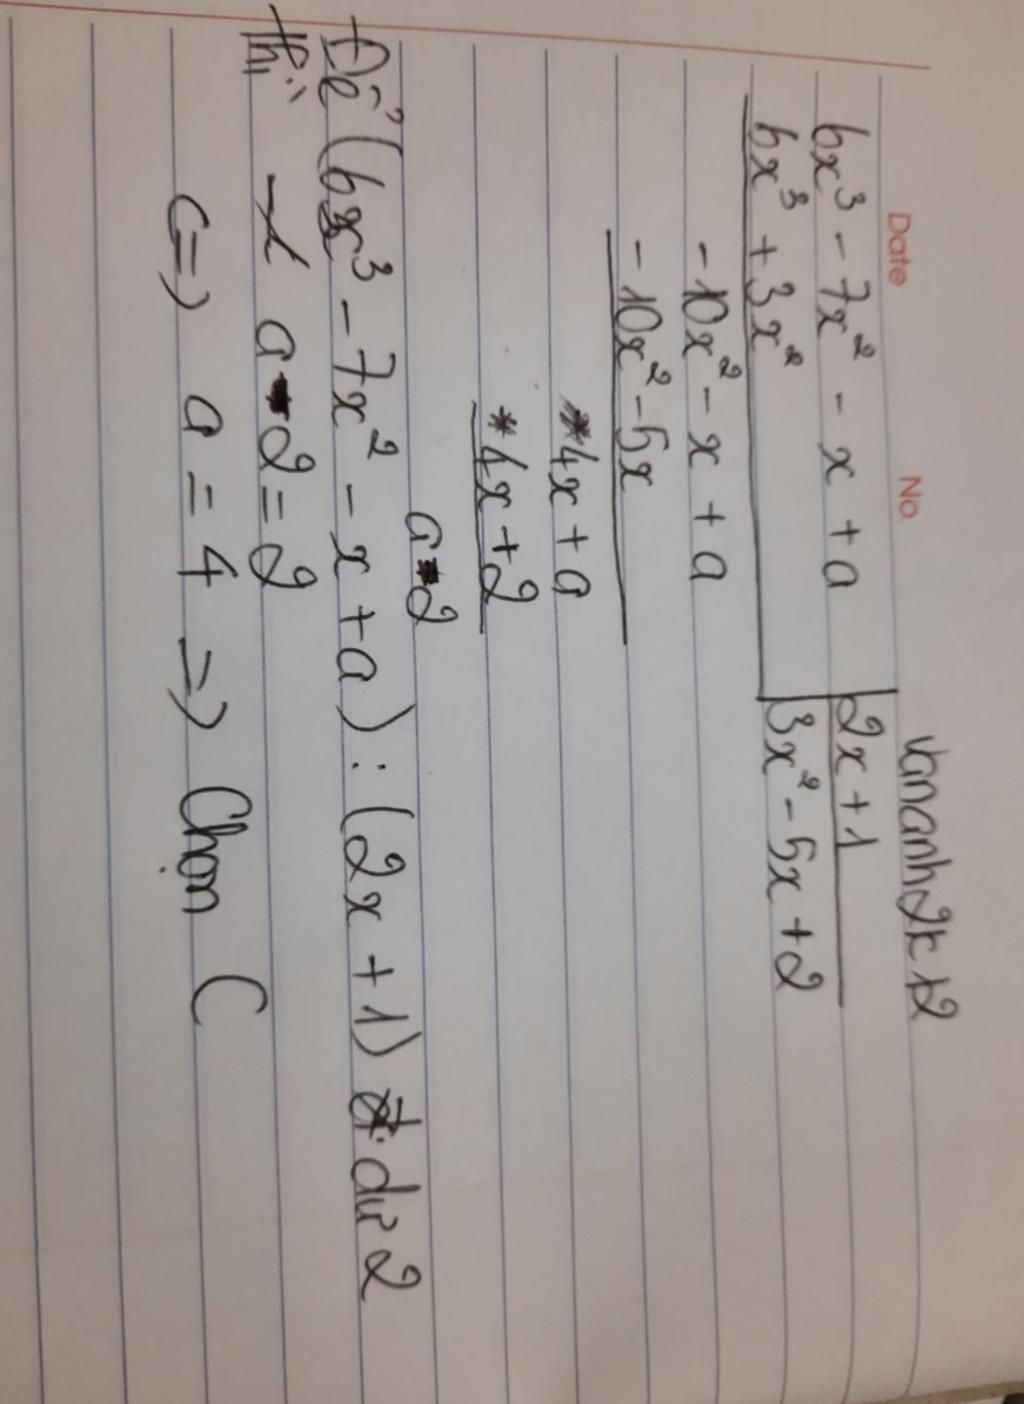 Date No. vananh2k12
6x³ - 7x² - x + a 2x + 1
6x³ + 3x² 3x² - 5x + 2
- 10x² - x + a
- 10x² - 5x
4x + a
4x + 2
a - 2
Để (6x³ - 7x² - x + a) : (2x + 1) dư 2
thì a - 2 = 2
<=> a = 4 => Chọn C